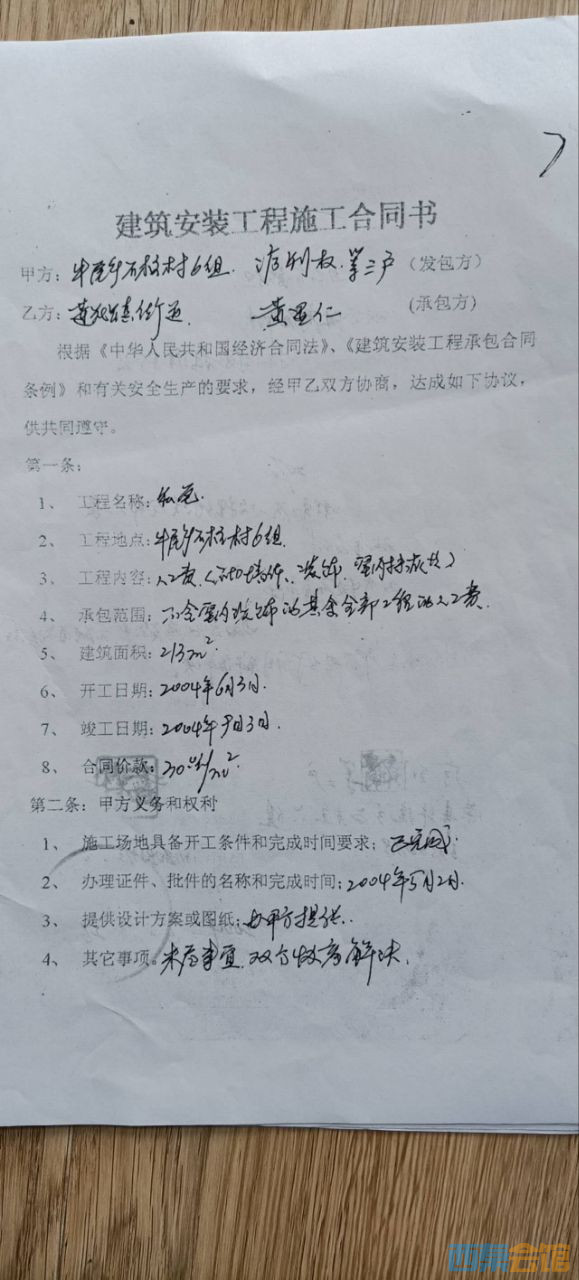 建筑安装工程施工合同书
甲方：牛尾乡石柱村6组. 权. 等三户（发包方）
乙方： 黄 仁 （承包方）
根据《中华人民共和国经济合同法》、《建筑安装工程承包合同
条例》和有关安全生产的要求，经甲乙双方协商，达成如下协议，
供共同遵守。
第一条：
1、 工程名称：私宅.
2、 工程地点：牛尾乡石柱村6组.
3、 工程内容：人工费
4、 承包范围：不含室内装饰的其余全部工程的人工费.
5、 建筑面积：213m²
6、 开工日期：2004年6月3日.
7、 竣工日期：2004年9月3日.
8、 合同价款： /m²
第二条：甲方义务和权利
1、 施工场地具备开工条件和完成时间要求；已完成.
2、 办理证件、批件的名称和完成时间：2004年5月2日.
3、 提供设计方案或图纸：由甲方提供.
4、 其它事项。未尽事宜.双方 解决.
西祠会馆